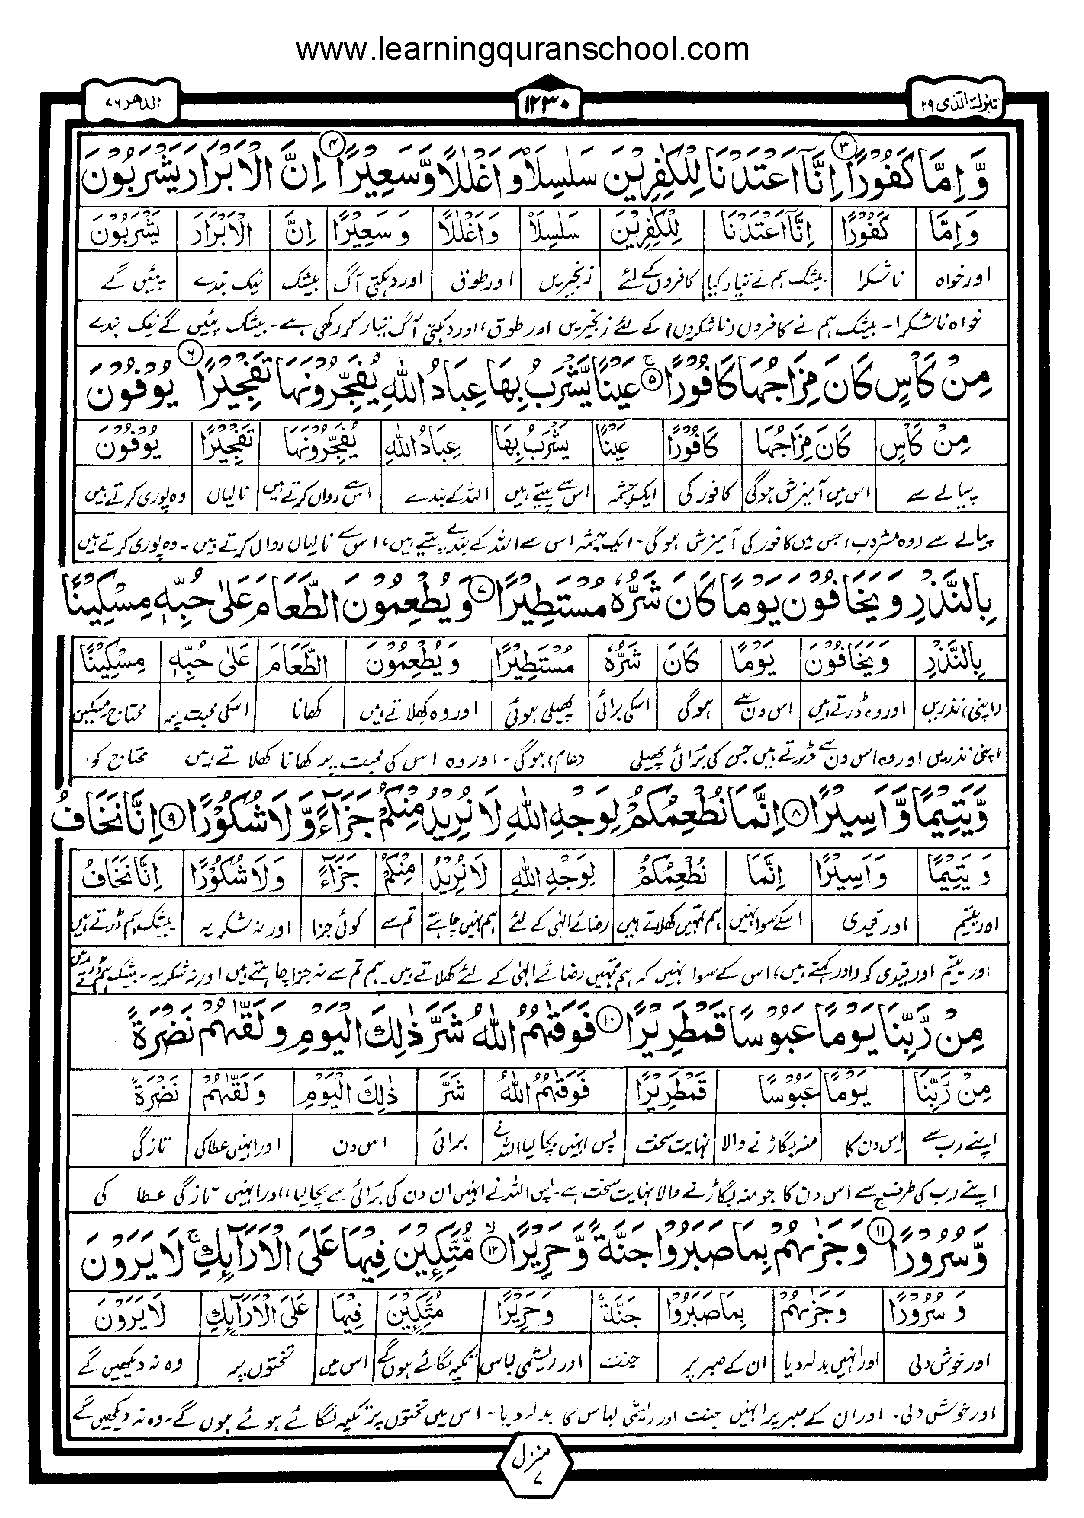 www.learningquranschool.com
تبٰرك الذی ۲۹
۱۲۳۰
الدهر ۷۶
وَّ اِمَّا كَفُوْرًا ۳ اِنَّاۤ اَعْتَدْنَا لِلْكٰفِرِیْنَ سَلٰسِلَاۡ وَ اَغْلٰلًا وَّ سَعِیْرًا ۴ اِنَّ الْاَبْرَارَ یَشْرَبُوْنَ
وَ اِمَّا كَفُوْرًا اِنَّاۤ اَعْتَدْنَا لِلْكٰفِرِیْنَ سَلٰسِلَاۡ وَ اَغْلٰلًا وَ سَعِیْرًا اِنَّ الْاَبْرَارَ یَشْرَبُوْنَ
اور خواہ ناشکرا بیشک ہم نے تیار کیا کافروں کے لئے زنجیریں اور طوق اور دہکتی آگ بیشک نیک بندے پیئیں گے
خواہ ناشکرا۔ بیشک ہم نے کافروں (ناشکروں) کے لئے زنجیریں اور طوق، اور دہکتی آگ تیار کر رکھی ہے۔ بیشک پیئیں گے نیک بندے
مِنْ كَاْسٍ كَانَ مِزَاجُهَا كَافُوْرًا ۵ عَیْنًا یَّشْرَبُ بِهَا عِبَادُ اللّٰهِ یُفَجِّرُوْنَهَا تَفْجِیْرًا ۶ یُوْفُوْنَ
مِنْ كَاْسٍ كَانَ مِزَاجُهَا كَافُوْرًا عَیْنًا یَشْرَبُ بِهَا عِبَادُ اللّٰهِ یُفَجِّرُوْنَهَا تَفْجِیْرًا یُوْفُوْنَ
پیالے سے اس میں آمیزش ہوگی کافور کی ایک چشمہ اس سے پیتے ہیں اللہ کے بندے اس سے رواں کرتے ہیں نالیاں وہ پوری کرتے ہیں
پیالے سے (وہ مشروب) جس میں کافور کی آمیزش ہوگی۔ ایک چشمہ اس سے اللہ کے بندے پیتے ہیں، اس سے نالیاں رواں کرتے ہیں۔ وہ پوری کرتے ہیں
بِالنَّذْرِ وَ یَخَافُوْنَ یَوْمًا كَانَ شَرُّهٗ مُسْتَطِیْرًا ۷ وَ یُطْعِمُوْنَ الطَّعَامَ عَلٰى حُبِّهٖ مِسْكِیْنًا
بِالنَّذْرِ وَ یَخَافُوْنَ یَوْمًا كَانَ شَرُّهٗ مُسْتَطِیْرًا وَ یُطْعِمُوْنَ الطَّعَامَ عَلٰى حُبِّهٖ مِسْكِیْنًا
(اپنی) نذریں اور وہ ڈرتے ہیں اس دن سے ہوگی اسکی برائی پھیلی ہوئی اور وہ کھلاتے ہیں کھانا اسکی محبت پر محتاج مسکین
اپنی نذریں اور وہ اس دن سے ڈرتے ہیں جس کی برائی پھیلی (عام) ہوگی۔ اور وہ اس کی محبت پر کھانا کھلاتے ہیں محتاج کو
وَّ یَتِیْمًا وَّ اَسِیْرًا ۸ اِنَّمَا نُطْعِمُكُمْ لِوَجْهِ اللّٰهِ لَا نُرِیْدُ مِنْكُمْ جَزَآءً وَّ لَا شُكُوْرًا ۹ اِنَّا نَخَافُ
وَ یَتِیْمًا وَ اَسِیْرًا اِنَّمَا نُطْعِمُكُمْ لِوَجْهِ اللّٰهِ لَا نُرِیْدُ مِنْكُمْ جَزَآءً وَلَا شُكُوْرًا اِنَّا نَخَافُ
اور یتیم اور قیدی اسکے سوا نہیں ہم تمہیں کھلاتے ہیں رضائے الٰہی کے لئے ہم نہیں چاہتے تم سے کوئی جزا اور نہ شکریہ بیشک ہم ڈرتے ہیں
اور یتیم اور قیدی کو (اور کہتے ہیں) اس کے سوا نہیں کہ ہم تمہیں رضائے الٰہی کے لئے کھلاتے ہیں۔ ہم تم سے نہ جزا چاہتے ہیں اور نہ شکریہ۔ بیشک ہم ڈرتے ہیں
مِنْ رَّبِّنَا یَوْمًا عَبُوْسًا قَمْطَرِیْرًا ۱۰ فَوَقٰىهُمُ اللّٰهُ شَرَّ ذٰلِكَ الْیَوْمِ وَ لَقّٰىهُمْ نَضْرَةً
مِنْ رَّبِّنَا یَوْمًا عَبُوْسًا قَمْطَرِیْرًا فَوَقٰىهُمُ اللّٰهُ شَرَّ ذٰلِكَ الْیَوْمِ وَ لَقّٰىهُمْ نَضْرَةً
اپنے رب سے اس دن کا منہ بگاڑنے والا نہایت سخت پس انہیں بچا لیا اللہ نے برائی اس دن اور انہیں عطا کی تازگی
اپنے رب کی طرف سے اس دن کا جو منہ بگاڑنے والا نہایت سخت ہے۔ پس اللہ نے انہیں اس دن کی برائی سے بچا لیا، اور انہیں تازگی عطا کی
وَّ سُرُوْرًا ۱۱ وَ جَزٰىهُمْ بِمَا صَبَرُوْا جَنَّةً وَّ حَرِیْرًا ۱۲ مُّتَّكِـِٕیْنَ فِیْهَا عَلَى الْاَرَآىِٕكِ لَا یَرَوْنَ
وَ سُرُوْرًا وَ جَزٰىهُمْ بِمَا صَبَرُوْا جَنَّةً وَ حَرِیْرًا مُتَّكِـِٕیْنَ فِیْهَا عَلَى الْاَرَآىِٕكِ لَا یَرَوْنَ
اور خوش دلی اور انہیں بدلہ دیا ان کے صبر پر جنت اور ریشمی لباس تکیہ لگائے ہوں گے اس میں تختوں پر وہ نہ دیکھیں گے
اور خوش دلی۔ اور ان کے صبر پر انہیں جنت اور ریشمی لباس کا بدلہ دیا۔ اس میں تختوں پر تکیہ لگائے ہوئے ہوں گے۔ وہ نہ دیکھیں گے
منزل ۷